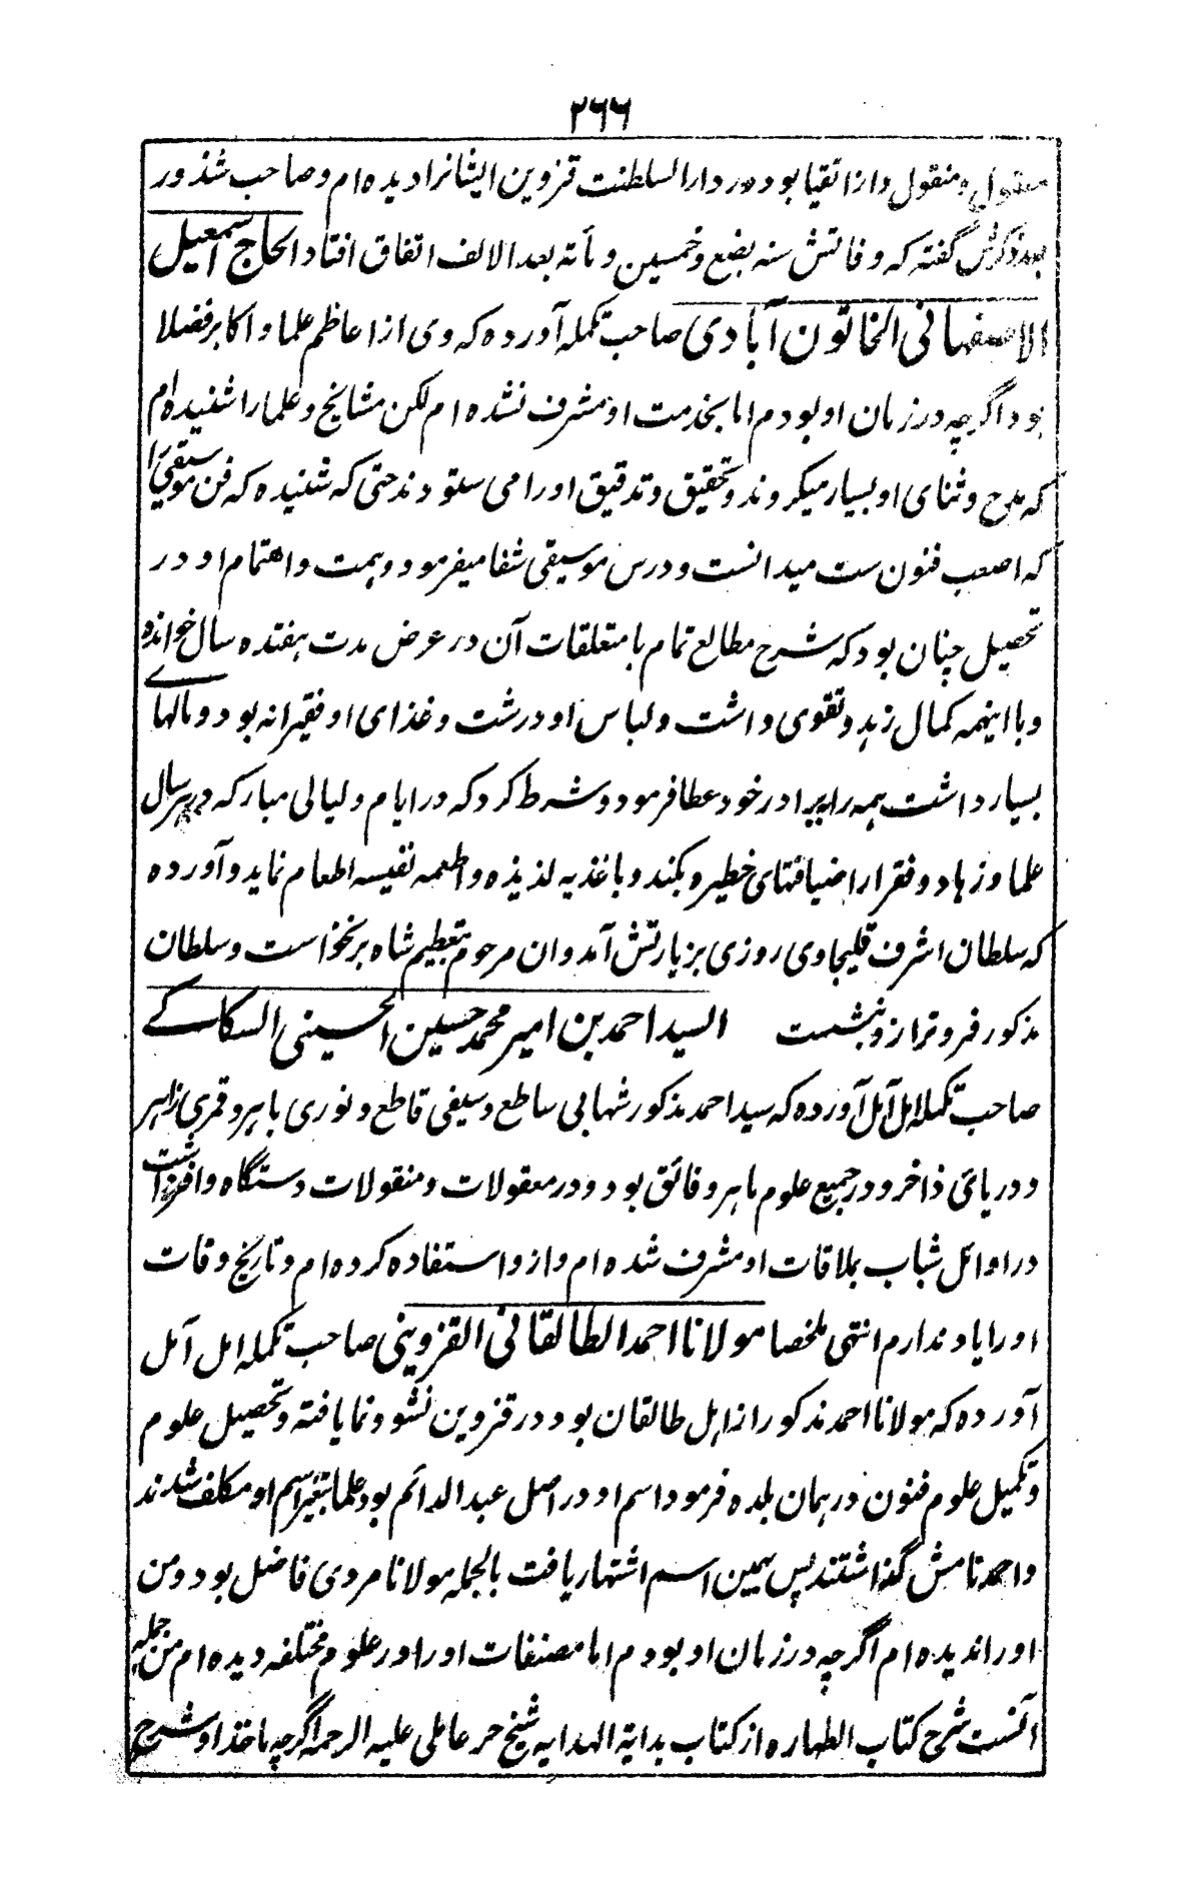 ۲۶۶
معقول و منقول و از اتقیا بوده در دار السلطنت قزوین ایشانرا دیده ام و صاحب شذور
بعد ذکرش گفته که وفاتش سنه بضع و خمسین و مأته بعد الالف اتفاق افتاد الحاج اسمعیل
الاصفهانی الخاتون آبادی صاحب تکمله آورده که وی از اعاظم علما و اکابر فضلا
بود اگرچه در زمان او بودم اما بخدمت او مشرف نشده ام لکن مشایخ و علما را شنیده ام
که مدح و ثنای او بسیار میکروند و تحقیق و تدقیق او را می ستودند حتی که شنیده که فن موسیقی را
که اصعب فنون ست میدانست و درس موسیقی شفا میفرمود و همت و اهتمام او در
تحصیل چنان بود که شرح مطالع تمام با متعلقات آن در عرض مدت هفتده سال خوانده
و با اینهمه کمال زهد و تقوی داشت و لباس او درشت و غذای او فقیرانه بود و مالهای
بسیار داشت همه را ببرادر خود عطا فرمود و شرط کرد که در ایام و لیالی مبارکه در هر سال
علما و زهاد و فقرا را ضیافتهای خطیر و بکند و باغذیه لذیذه و اطعمه نفیسه اطعام نماید و آورده
که سلطان اشرف قلیجاوی روزی بزیارتش آمد و ان مرحوم بتعظیم شاه برنخواست و سلطان
مذکور فروتر ازو بنشست السید احمد بن امیر محمد حسین الحسینی السکاکے
صاحب تکمله امل آمل آورده که سید احمد مذکور شهابی ساطع و سیفی قاطع و نوری باهر و قمری زاهر
و دریائ ذاخر و در جمیع علوم ماهر و فائق بود و در معقولات و منقولات دستگاه وافر داشت
در اوائل شباب بملاقات او مشرف شده ام و ازو استفاده کرده ام و تاریخ وفات
او را یاد ندارم انتهی ملخصا مولانا احمد الطالقانی القزوینی صاحب تکمله امل آمل
آورده که مولانا احمد مذکور از اهل طالقان بود در قزوین نشو و نما یافته و تحصیل علوم
و تکمیل علوم فنون در همان بلده فرمود اسم او در اصل عبد الدائم بود علما بتغیر اسم او مکلف شدند
و احمد نامش گذاشتند پس بهمین اسم اشتهار یافت بالجمله مولانا مردی فاضل بود و من
او را ندیده ام اگرچه در زمان او بودم اما مصنفات او را در علوم مختلفه دیده ام من جمله
آنست شرح کتاب الطهاره از کتاب بدایة الهدایه شیخ حر عاملی علیه الرحمه اگرچه ماخذ او شرح